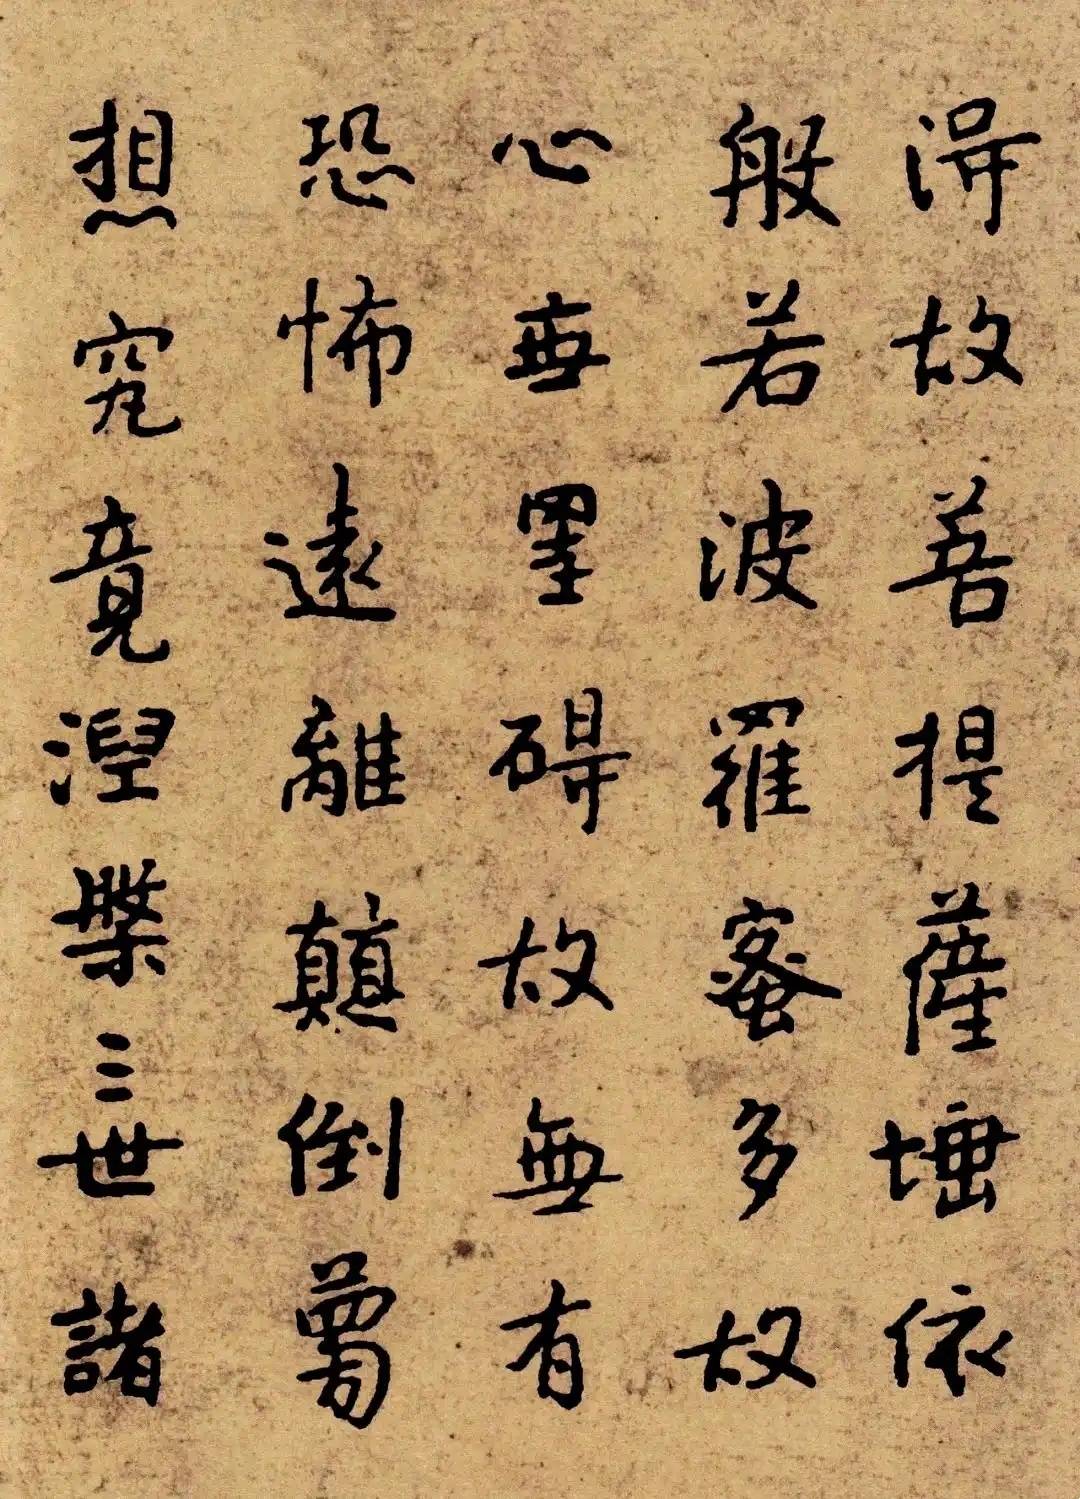 淂故菩提薩埵依
般若波羅蜜多故
心無罣礙故無有
恐怖遠離顛倒夢
想究竟涅槃三世諸